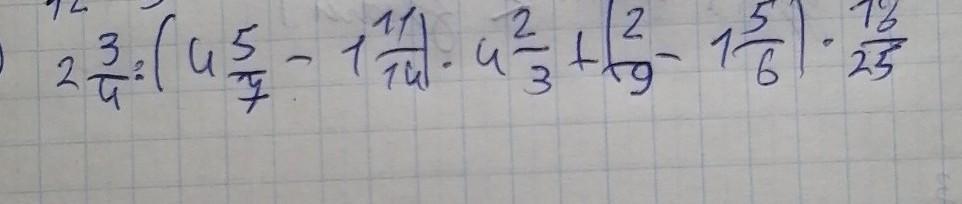 ) 2 3/4 : ( 4 5/7 - 1 11/14 ) · 4 2/3 + ( 2/9 - 1 5/6 ) · 18/25